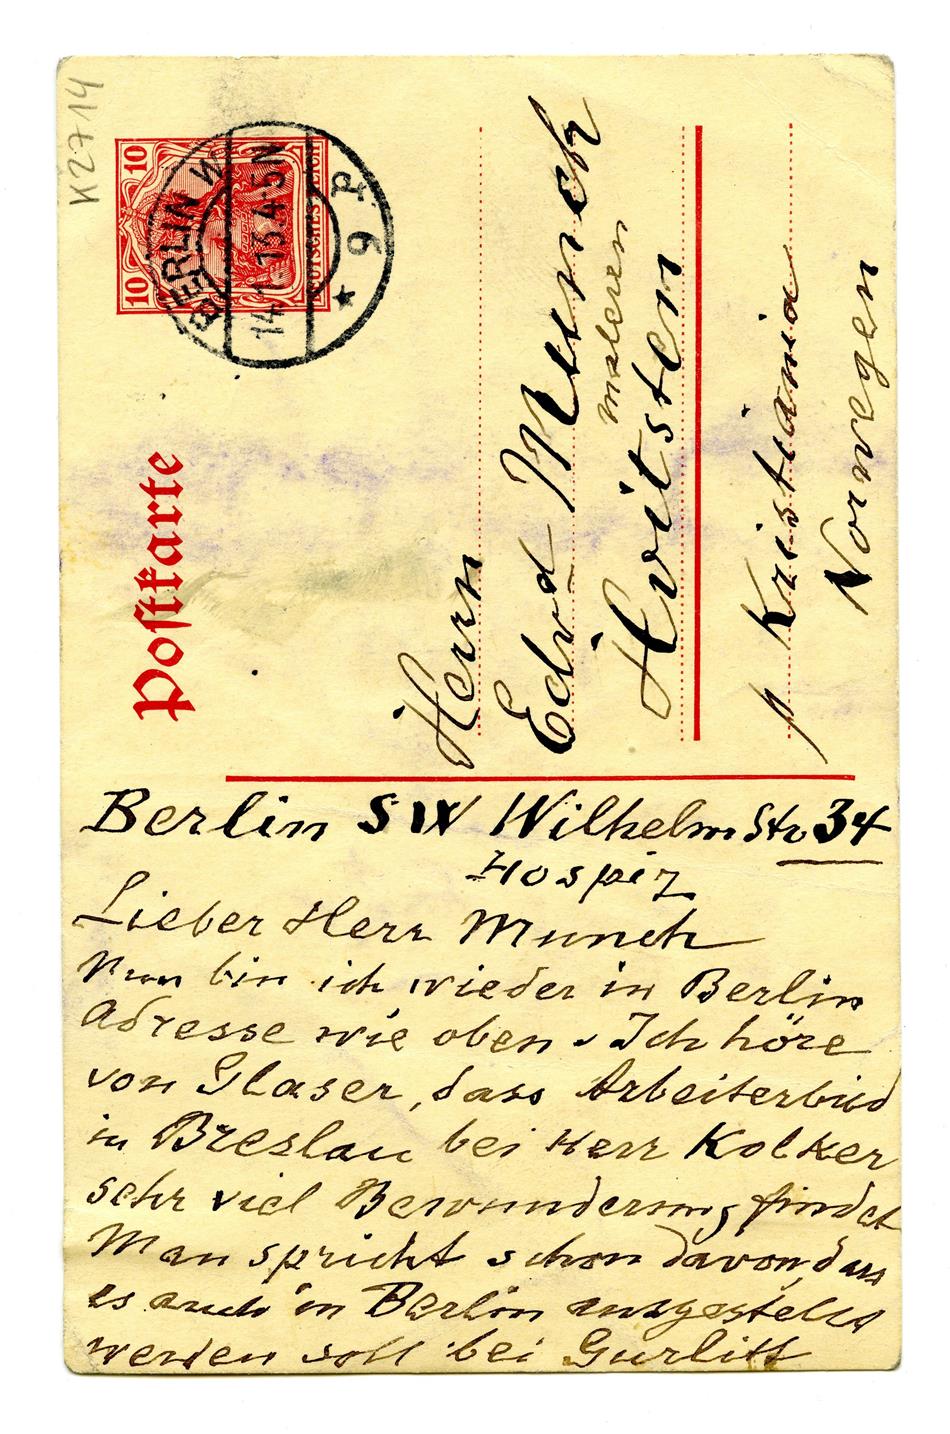 K2714
10
10
DEUTSCHES REICH
BERLIN W
14.1.13.4-5N
* 9 p
Postkarte
Herrn
Edvd Munch
maleren
Hvitsten
p Kristiania
Norwegen
Berlin SW Wilhelm Str 34
Hospiz
Lieber Herr Munch
Nun bin ich wieder in Berlin
Adresse wie oben. Ich höre
von Glaser, dass Arbeiterbild
in Breslau bei Herr Kolker
sehr viel Bewunderung findet
Man spricht schon davon, dass
es auch in Berlin ausgestellt
werden soll bei Gurlitt